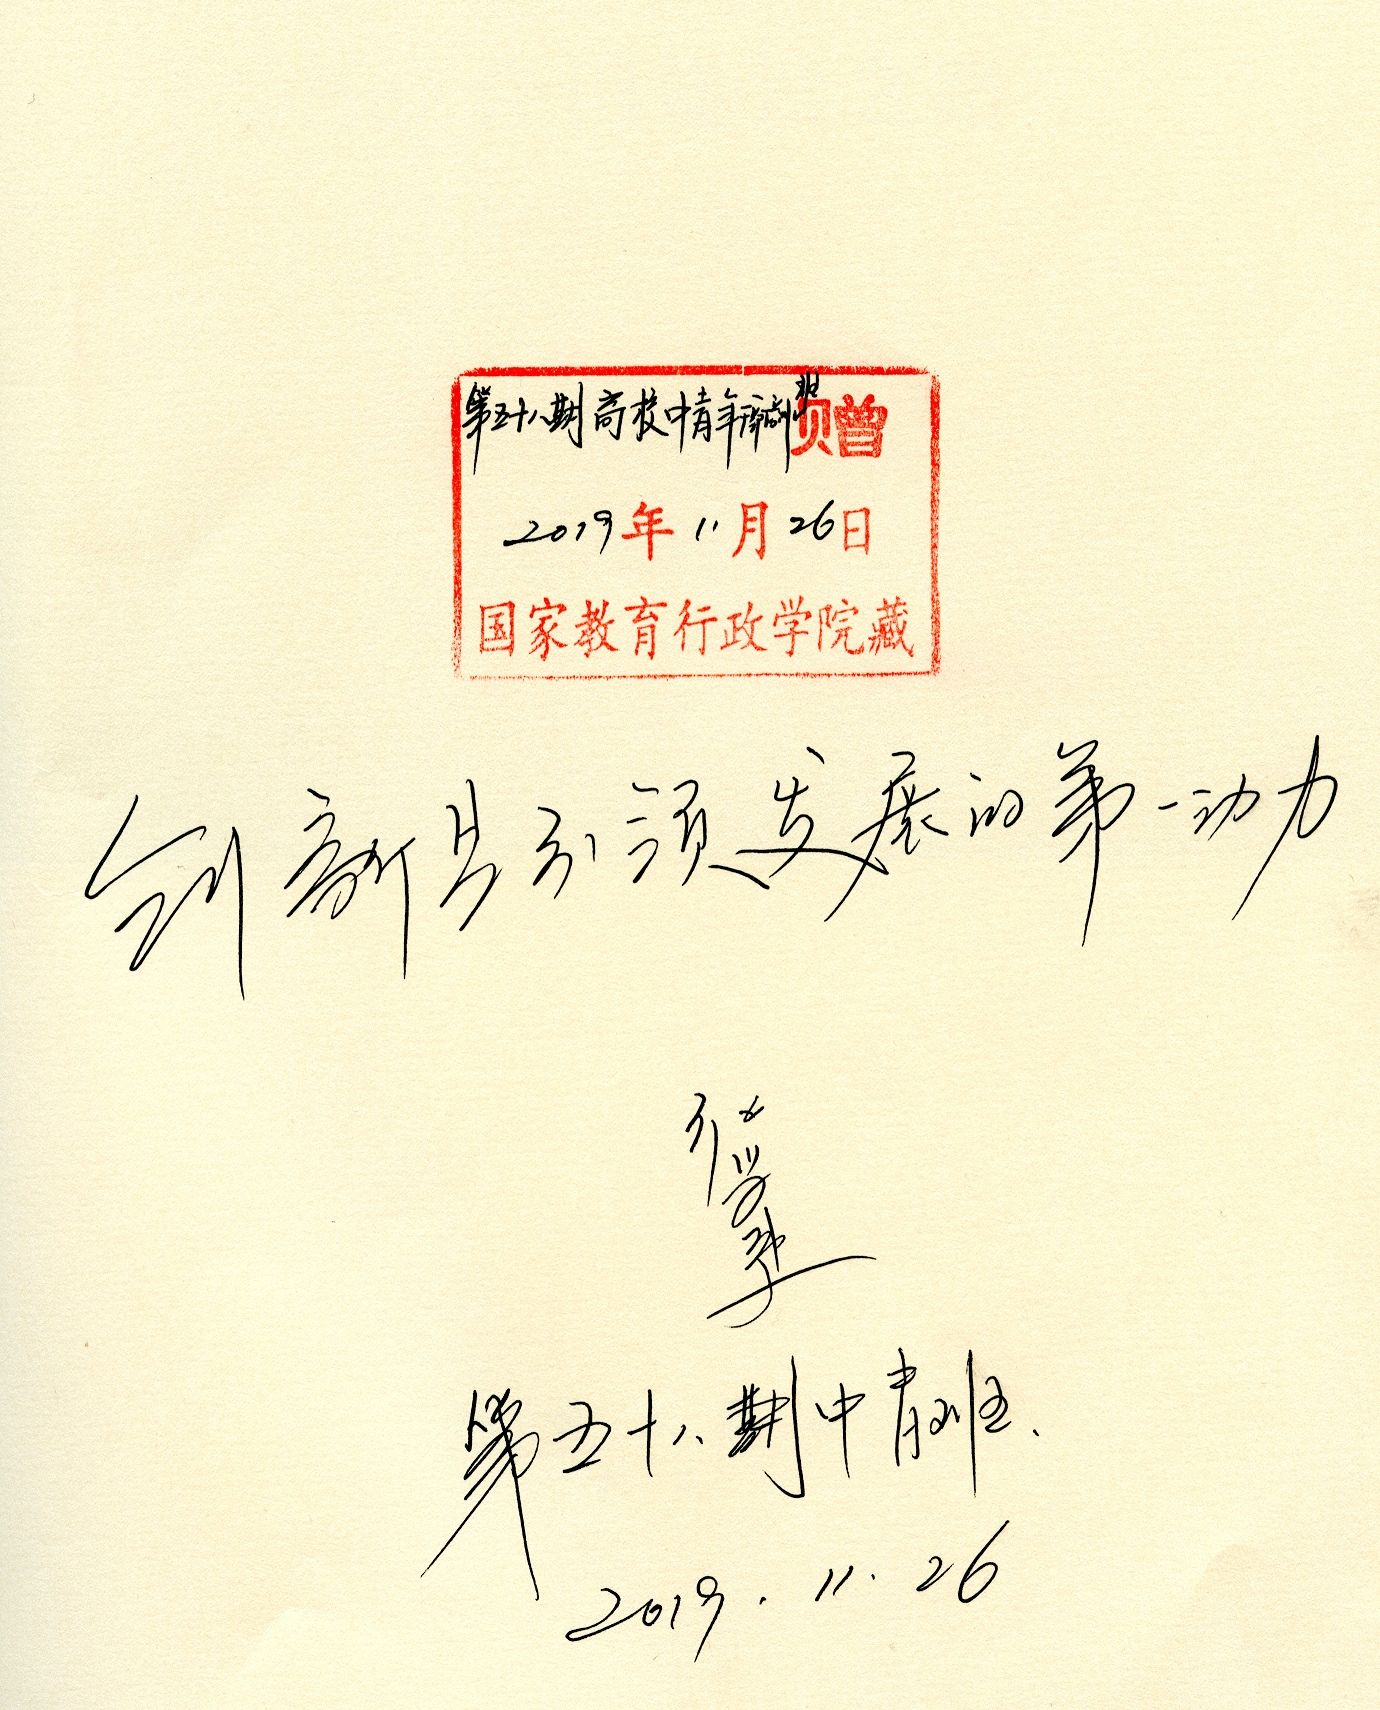 第五十八期高校中青年干部班赠
2019年11月26日
国家教育行政学院藏
创新是引领发展的第一动力
第五十八期中青班.
2019.11.26